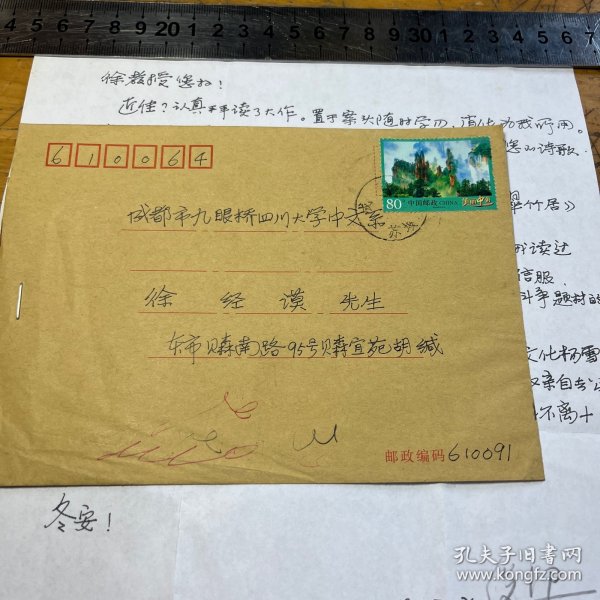 1 2 3 4 5 6 7 8 9 10 1 2 3 4 5 6 7 8 9 20 1 2 3
徐教授您好！
近佳？认真拜读了大作。置于案头随时学习，消化为我所用。
您的诗歌
翠竹居》
我读过
信服
斗争题材的
文化
亲自去
不离十
610064
80 中国邮政 CHINA 美丽中国
成都市九眼桥四川大学中文系
徐经谟 先生
东市贝森南路95号贝森宜苑胡缄
邮政编码 610091
冬安！
孔夫子旧书网
www.kongfz.com